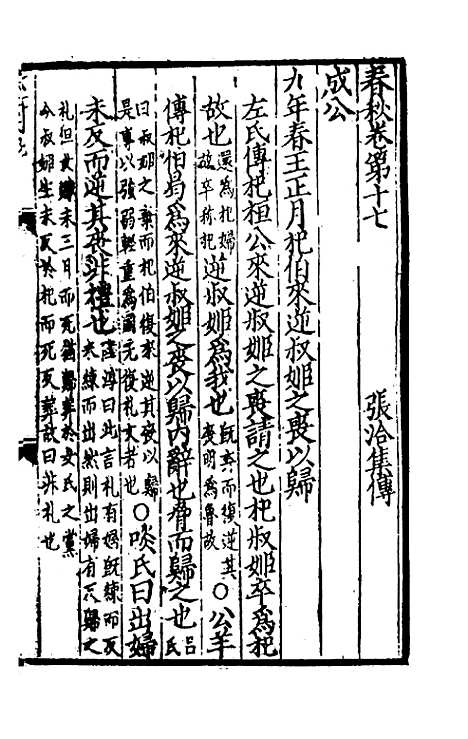 春秋卷第十七　　　張洽集傳
成公
九年春王正月杞伯來逆叔姬之喪以歸
左氏傳杞桓公來逆叔姬之喪請之也杞叔姬卒爲杞
故也還爲杞婦故卒稱杞逆叔姬爲我也旣弃而復逆其喪明爲魯故○公羊
傳杞伯曷爲來逆叔姬之喪以歸內辭也脅而歸之也呂氏
曰叔姬之棄而杞伯復來逆其喪以歸是專以強弱輕重爲國无復礼文者也○啖氏曰出婦
未反而逆其喪非禮也陸淳曰此言礼有婦旣練而反未練而出然則出婦有反歸之
礼但女嫁未三月而死猶歸葬於女氏之黨今叔姬生未反於杞而死反葬故曰非礼也